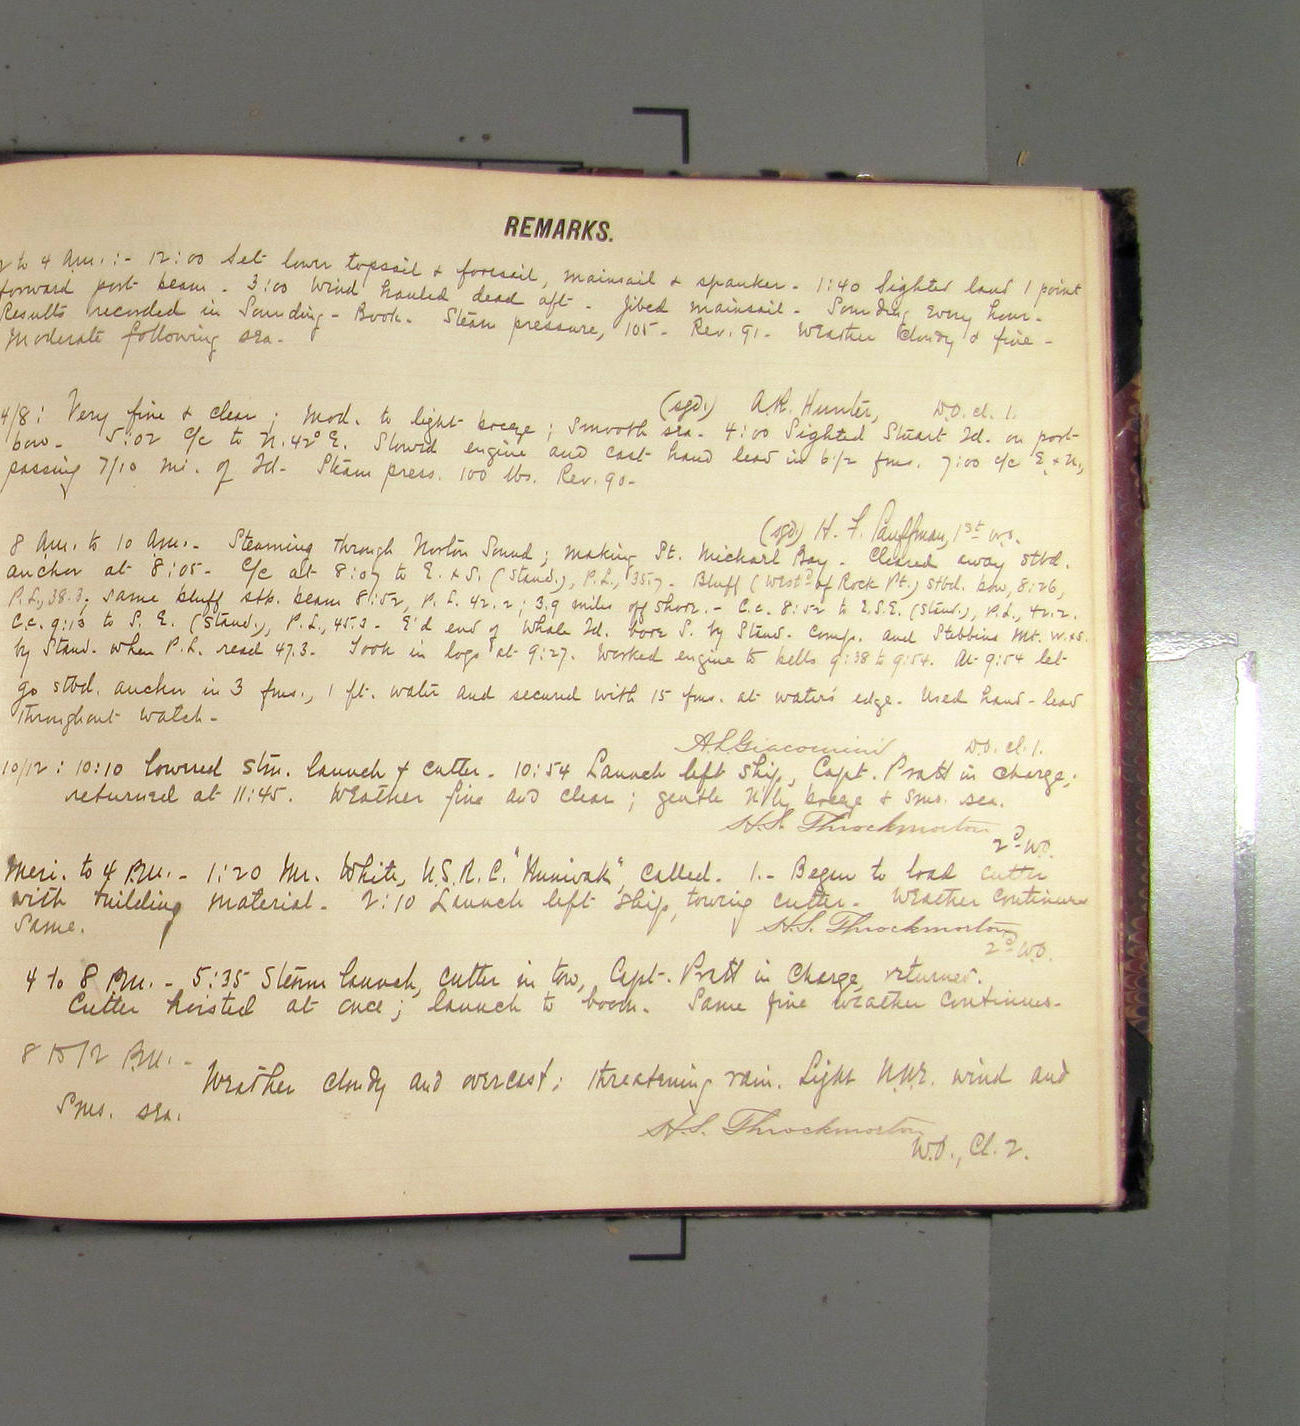 REMARKS.
to 4 Am. :- 12:00 Set lower topsail & foresail, mainsail & spanker - 1:40 Sighted land 1 point
forward port beam - 3:00 Wind hauled dead aft - Jibed mainsail - Sounding every hour -
Results recorded in Sounding-Book. Steam pressure, 105 - Rev. 91 - Weather cloudy & fine -
Moderate following sea -
(sgd.) A.R. Hunter, W.O. cl. 1.
4/8: Very fine & clear; Mod. to light breeze; Smooth sea - 4:00 Sighted Stuart Id. on port
bow - 5:02 c/c to N. 42° E. Slowed engine and cast hand lead in 6 1/2 fms. 7:00 c/c E. x N.,
passing 7/10 mi. of Id - Steam press. 100 lbs. Rev. 90 -
(sgd.) H. F. 1st W.O.
8 Am. to 10 Am. - Steaming through Norton Sound; making St. Michael Bay - Cleared away stbd.
anchor at 8:05 - C/c at 8:07 to E. x S. (Stand.), P.L., 35.7 - Bluff (West'd of Rock Pt.) stbd. bow, 8:26,
P.L., 38.3; same bluff stb. beam 8:52, P.L. 42.2; 3.9 miles off shore. - C.c. 8:52 to E.S.E. (Stand.), P.L., 42.2.
C.c. 9:13 to S. E. (Stand.), P.L., 45.3 - E'd end of Whale Id. bore S. by Stand. Comp. and Stebbins Mt. W. x S.
by Stand. when P.L. read 47.3 - Took in logs at 9:27. Worked engine to bells 9:38 to 9:54. At 9:54 let
go stbd. anchor in 3 fms., 1 ft. water and secured with 15 fms. at water's edge - Used hand-lead
throughout watch -
A. L. Giacomini W.O. cl. 1.
10/12: 10:10 lowered stm. launch & cutter - 10:54 Launch left ship, Capt. Pratt in charge;
returned at 11:45. Weather fine and clear; gentle N'ly breeze & smo. sea.
H.S. Throckmorton
2d W.O.
Meri. to 4 P.M. - 1:20 Mr. White, U.S.R.C. "Nunivak", called - 1. - Began to load cutter
with building material - 2:10 Launch left ship, towing cutter - Weather continues
same.
H.S. Throckmorton
2d W.O.
4 to 8 P.M. - 5:35 Steam launch, cutter in tow, Capt. Pratt in charge, returned.
Cutter hoisted at once; launch to boom. Same fine weather continues -
8 to 12 P.M. -
Weather cloudy and overcast; threatening rain. Light N.N.E. wind and
smo. sea.
H.S. Throckmorton
W.O., Cl. 2.